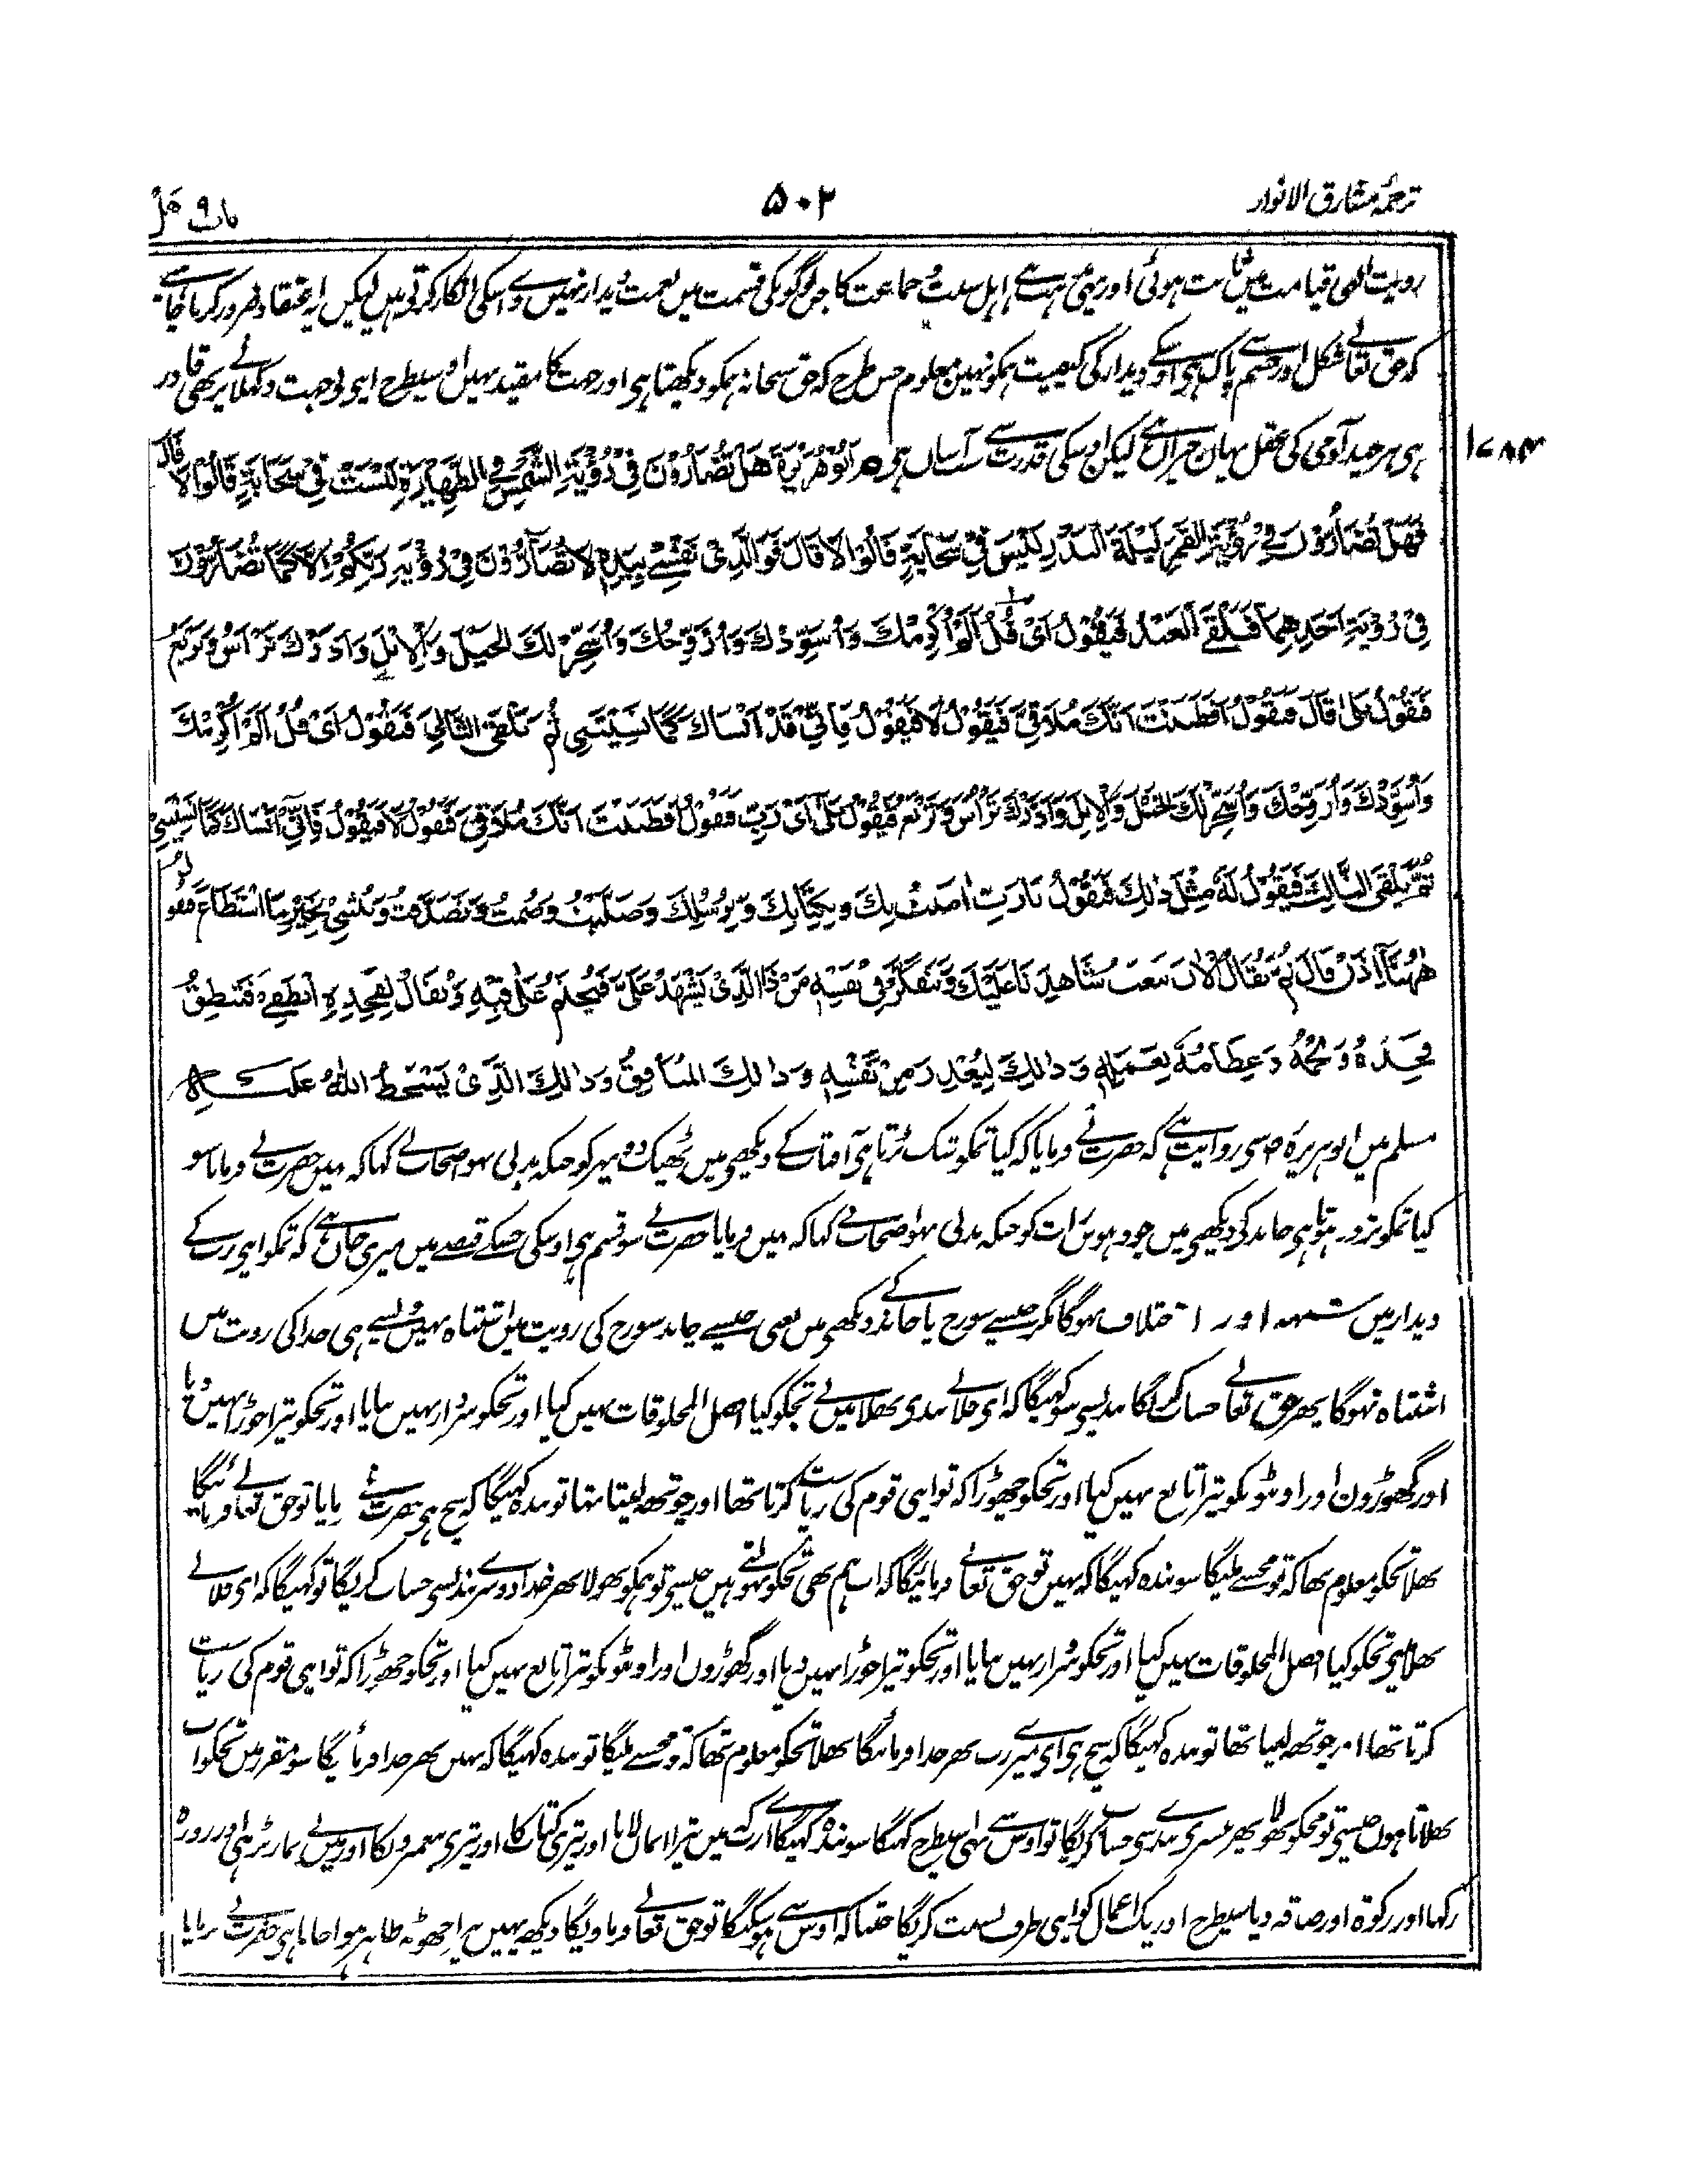 ترجمۂ مشارق الانوار
۵۰۲
باب ۹ هَلْ
رویت الٰہی قیامت میں ثابت ہوئی اور یہی مذہب ہے اہل سنت و جماعت کا جن لوگونکی قسمت میں نعمت دیدار نہیں وے اسکی انکار کرتی ہیں لیکن یہ اعتقاد ضرور کرنا چاہئے
کہ حق تعالے شکل اور جسم سے پاک ہی اوسکے دیدار کی کیفیت ہمکو نہین معلوم جس طرح کہ حق سبحانہ ہمکو دیکھتا ہی اور جہت کا مقید نہیں اوسیطرح اپنی بی جہت دکھلانے پر بھی قادر
ہی ہر چند آدمی کی عقل یہان حیران ہے لیکن اوسکی قدرت سے سب آسان ہی م اَبُوْهُرَيْرَةَ هَلْ تُضَارُّوْنَ فِيْ رُؤْيَةِ الشَّمْسِ فِي الظَّهِيْرَةِ لَيْسَتْ فِيْ سَحَابَةٍ قَالُوْا لَا قَالَ
۱۷۸۴
فَهَلْ تُضَارُّوْنَ فِيْ رُؤْيَةِ الْقَمَرِ لَيْلَةَ الْبَدْرِ لَيْسَ فِيْ سَحَابَةٍ قَالُوْا لَا قَالَ فَوَالَّذِيْ نَفْسِيْ بِيَدِهٖ لَا تُضَارُّوْنَ فِيْ رُؤْيَةِ رَبِّكُمْ اِلَّا كَمَا تُضَارُّوْنَ
فِيْ رُؤْيَةِ اَحَدِهِمَا فَيَلْقَى الْعَبْدَ فَيَقُوْلُ اَيْ فُلْ اَلَمْ اُكْرِمْكَ وَاُسَوِّدْكَ وَاُزَوِّجْكَ وَاُسَخِّرْ لَكَ الْخَيْلَ وَالْاِبِلَ وَاَذَرْكَ تَرْاَسُ وَتَرْبَعُ
فَيَقُوْلُ بَلٰى قَالَ فَيَقُوْلُ اَفَظَنَنْتَ اَنَّكَ مُلَاقِيَّ فَيَقُوْلُ لَا فَيَقُوْلُ فَاِنِّيْ قَدْ اَنْسَاكَ كَمَا نَسِيْتَنِيْ ثُمَّ يَلْقَى الثَّانِيَ فَيَقُوْلُ اَيْ فُلْ اَلَمْ اُكْرِمْكَ
وَاُسَوِّدْكَ وَاُزَوِّجْكَ وَاُسَخِّرْ لَكَ الْخَيْلَ وَالْاِبِلَ وَاَذَرْكَ تَرْاَسُ وَتَرْبَعُ فَيَقُوْلُ بَلٰى اَيْ رَبِّ فَيَقُوْلُ اَفَظَنَنْتَ اَنَّكَ مُلَاقِيَّ فَيَقُوْلُ لَا فَيَقُوْلُ فَاِنِّيْ اَنْسَاكَ كَمَا نَسِيْتَنِيْ
ثُمَّ يَلْقَى الثَّالِثَ فَيَقُوْلُ لَهٗ مِثْلَ ذٰلِكَ فَيَقُوْلُ يَا رَبِّ اٰمَنْتُ بِكَ وَبِكِتَابِكَ وَبِرُسُلِكَ وَصَلَّيْتُ وَصُمْتُ وَتَصَدَّقْتُ وَيُثْنِيْ بِخَيْرٍ مَا اسْتَطَاعَ فَيَقُوْلُ
هٰهُنَا اِذَنْ قَالَ ثُمَّ يُقَالُ الْاٰنَ نَبْعَثُ شَاهِدَنَا عَلَيْكَ وَيَتَفَكَّرُ فِيْ نَفْسِهٖ مَنْ ذَا الَّذِيْ يَشْهَدُ عَلَيَّ فَيُخْتَمُ عَلٰى فِيْهِ وَيُقَالُ لِفَخِذِهٖ انْطِقِيْ فَتَنْطِقُ
فَخِذُهٗ وَلَحْمُهٗ وَعِظَامُهٗ بِعَمَلِهٖ وَذَالِكَ لِيُعْذِرَ مِنْ نَفْسِهٖ وَذَالِكَ الْمُنَافِقُ وَذَالِكَ الَّذِيْ يَسْخَطُ اللّٰهُ عَلَيْهِ
مسلم میں ابو ہریرہ رض سی روایت ہے کہ حضرت نے فرمایا کہ کیا تمکو شک پڑتا ہی آفتاب کے دیکھنی میں ٹھیک دوپہر کو جبکہ بدلی نہو اصحاب نے کہا کہ نہیں حضرت نے فرمایا سو
کیا تمکو تردد ہوتا ہی چاند کی دیکھنی میں چودہویں رات کو جبکہ بدلی نہو اصحاب نے کہا کہ نہیں فرمایا حضرت نے سو قسم ہی اوسکی جسکے قبضے میں میری جان ہے کہ تمکو اپنی رب کے
دیدار میں شبہہ اور اختلاف نہوگا مگر جیسے سورج یا چاند کے دیکھنی میں یعنی جیسے چاند سورج کی رویت میں اشتباہ نہیں ویسے ہی خدا کی رویت میں
اشتباہ نہوگا پھر حق تعالے حساب کریگا بندیسی سو کہیگا کہ ای فلانے بندی بھلا میں نے تجکو کیا افضل المخلوقات نہیں کیا اور تجکو سردار نہیں بنایا اور تجکو تیرا جوڑا نہیں دیا
اور گھوڑون اور اونٹونکو تیرا تابع نہیں کیا اور تجکو چھوڑا کہ تو اپنی قوم کی ریاست کرتا تھا اور چوتھ لیتا تھا تو بندہ کہیگا کہ سچ ہی حضرت نے فرمایا تو حق تعالے فرمائیگا
بھلا تجکو معلوم تھا کہ تو مجسے ملیگا سو بندہ کہیگا کہ نہیں تو حق تعالے فرمائیگا کہ اب ہم بھی تجکو بھولتے ہیں جیسی تو ہمکو بھولا پھر خدا دوسرے بندیسی حساب کریگا تو کہیگا کہ ای فلانے
بھلا میں نے تجکو کیا افضل المخلوقات نہیں کیا اور تجکو سردار نہیں بنایا اور تجکو تیرا جوڑا نہیں دیا اور گھوڑون اور اونٹونکو تیرا تابع نہیں کیا اور تجکو چھوڑا کہ تو اپنی قوم کی ریاست
کرتا تھا اور چوتھ لیتا تھا تو بندہ کہیگا کہ سچ ہی ای میرے رب پھر خدا فرمائیگا بھلا تجکو معلوم تھا کہ تو مجسے ملیگا تو بندہ کہیگا کہ نہیں پھر خدا فرمائیگا سو مقرر میں تجکو اب
بھلاتا ہوں جیسی تو مجکو بھولا پھر تیسری بندیسی حساب کریگا تو اوس سے بھی اسیطرح کہیگا سو بندہ کہیگا اے رب میں تیرا ایمان لایا اور تیری کتاب کا اور تیری پیغمبرونکا اور میں نے نماز پڑہی اور روزہ
رکھا اور زکوۃ اور صدقہ دیا اسیطرح اور نیک اعمال کو اپنی طرف نسبت کریگا جتنا کہ اوس سے ہو سکیگا تو حق تعالے فرماویگا دیکھ یہیں تیرا جھوٹھ ظاہر ہوا جاتا ہی حضرت نے فرمایا